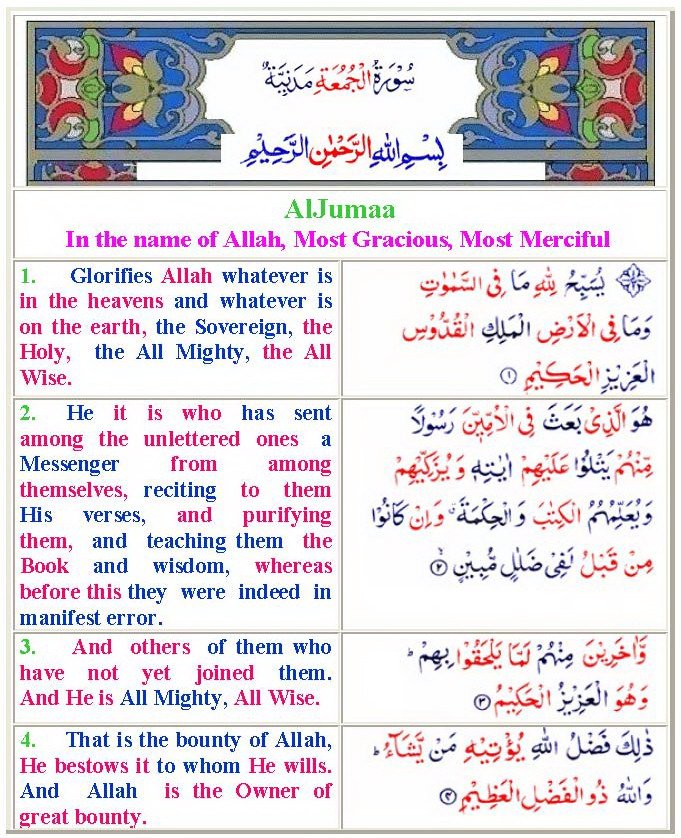 سُوْرَةُ الْجُمُعَةِ مَدَنِيَّةٌ
بِسْمِ اللّٰهِ الرَّحْمٰنِ الرَّحِيْمِ
AlJumaa
In the name of Allah, Most Gracious, Most Merciful
1. Glorifies Allah whatever is
in the heavens and whatever is
on the earth, the Sovereign, the
Holy, the All Mighty, the All
Wise.
يُسَبِّحُ لِلّٰهِ مَا فِى السَّمٰوٰتِ
وَمَا فِى الْاَرْضِ الْمَلِكِ الْقُدُّوْسِ
الْعَزِيْزِ الْحَكِيْمِ ۝۱
2. He it is who has sent
among the unlettered ones a
Messenger from among
themselves, reciting to them
His verses, and purifying
them, and teaching them the
Book and wisdom, whereas
before this they were indeed in
manifest error.
هُوَ الَّذِىْ بَعَثَ فِى الْاُمِّيّٖنَ رَسُوْلًا
مِّنْهُمْ يَتْلُوْا عَلَيْهِمْ اٰيٰتِهٖ وَ يُزَكِّيْهِمْ
وَيُعَلِّمُهُمُ الْكِتٰبَ وَ الْحِكْمَةَ ۗ وَاِنْ كَانُوْا
مِنْ قَبْلُ لَفِىْ ضَلٰلٍ مُّبِيْنٍ ۝۲
3. And others of them who
have not yet joined them.
And He is All Mighty, All Wise.
وَّاٰخَرِيْنَ مِنْهُمْ لَمَّا يَلْحَقُوْا بِهِمْ ؕ
وَهُوَ الْعَزِيْزُ الْحَكِيْمُ ۝۳
4. That is the bounty of Allah,
He bestows it to whom He wills.
And Allah is the Owner of
great bounty.
ذٰلِكَ فَضْلُ اللّٰهِ يُؤْتِيْهِ مَنْ يَّشَآءُ ؕ
وَاللّٰهُ ذُو الْفَضْلِ الْعَظِيْمِ ۝۴